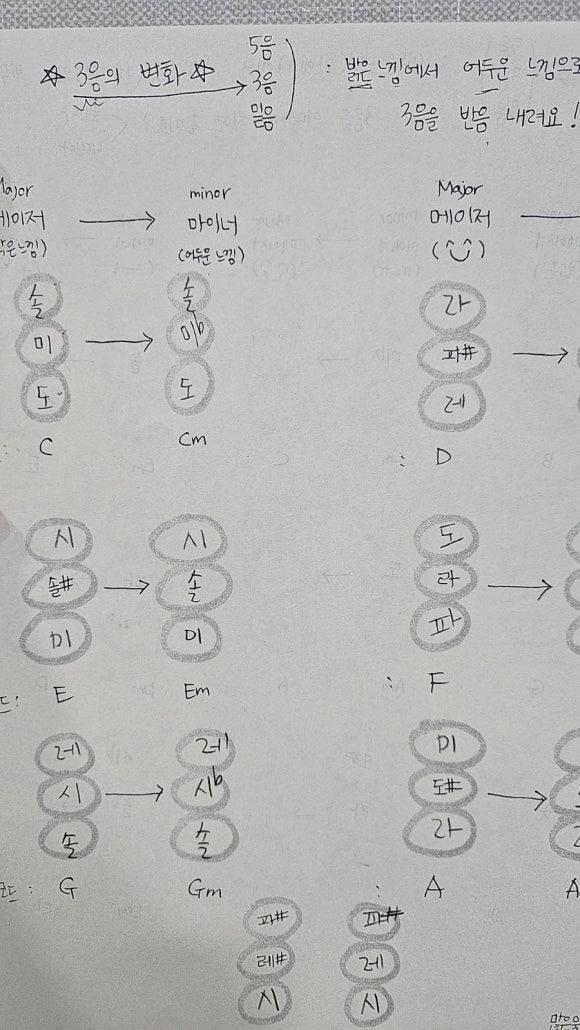 ☆ 3음의 변화 ☆ → 5음 3음 밑음 : 밝은 느낌에서 어두운 느낌으로
3음을 반음 내려요!
Major → minor
메이저 마이너
(어두운 느낌)
솔 솔
미 → 미b
도 도
: C Cm
Major
메이저 →
라
파# →
레
: D
시 시
솔# → 솔
미 미
: E Em
도
라 →
파
: F
레 레
시 → 시b
솔 솔
: G Gm
미
도# →
라
: A A
파# 파#
레# 레
시 시